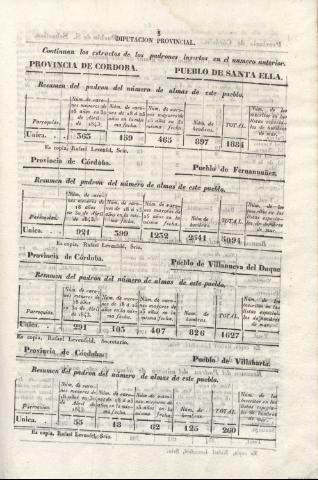 2
DIPUTACION PROVINCIAL.
Continuan los estractos de los padrones insertos en el número anterior.
PROVINCIA DE CORDOBA. PUEBLO DE SANTA ELLA.
Resumen del padron del número de almas de este pueblo.
Parroquias. Núm. de varones menores de 18 años en 30 de Abril de 1843. Núm. de varones de 18 á 25 años en la misma fecha. Núm. de varones mayores de 25 años en la misma fecha. Núm. de hembras. TOTAL.
Unica. 363 159 465 897 1884
Es copia, Rafael Lovenfeld, Srio.
Provincia de Córdoba. Pueblo de Fernannuñez.
Resumen del padron del número de almas de este pueblo.
Parroquias. Núm. de varones menores de 18 años en 30 de Abril de 1843. Núm. de varones de 18 á 25 años en la misma fecha. Núm. de varones mayores de 25 años en la misma fecha. Núm. de hembras. TOTAL.
Unica. 921 399 1232 2541 5094
Es copia, Rafael Lovenfeld, Srio.
Provincia de Córdoba. Pueblo de Villanueva del Duque
Resumen del padron del número de almas de este pueblo.
Parroquias. Núm. de varones menores de 18 años en 30 de Abril de 1843. Núm. de varones de 18 á 25 años en la misma fecha. Núm. de varones mayores de 25 años en la misma fecha. Núm. de hembras. TOTAL.
Unica. 291 105 407 826 1627
Es copia, Rafael Lovenfeld, Secretario.
Provincia de Córdoba: Pueblo de Villaharta:
Resumen del padron del número de almas de este pueblo.
Parroquias. Núm. de varones menores de 18 años en 30 de Abril de 1843. Núm. de varones de 18 á 25 años en la misma fecha. Núm. de varones mayores de 25 años en la misma fecha. Núm. de hembras. TOTAL.
Unica. 55 18 62 125 260
Es copia, Rafael Lovenfeld, Srio.